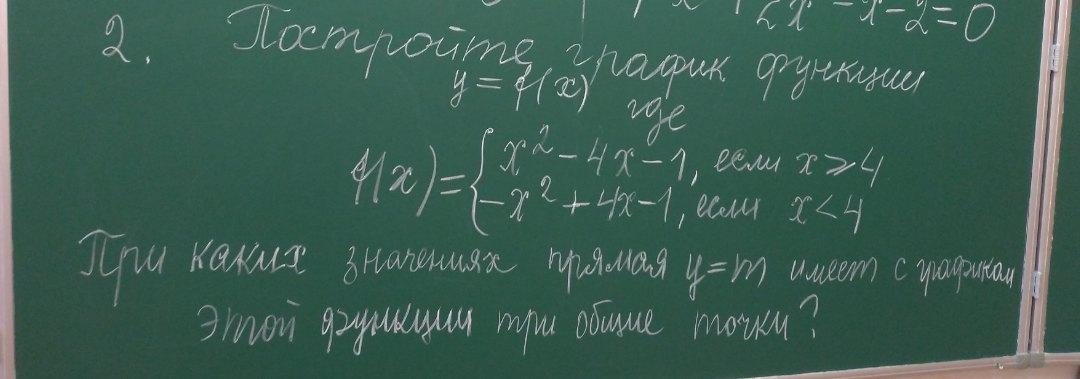 2x - x - 2 = 0
2. Постройте график функции
y = f(x)
где
f(x) = { x² - 4x - 1, если x ⩾ 4
-x² + 4x - 1, если x < 4
При каких значениях прямая y = m имеет с графиком
этой функции три общие точки?